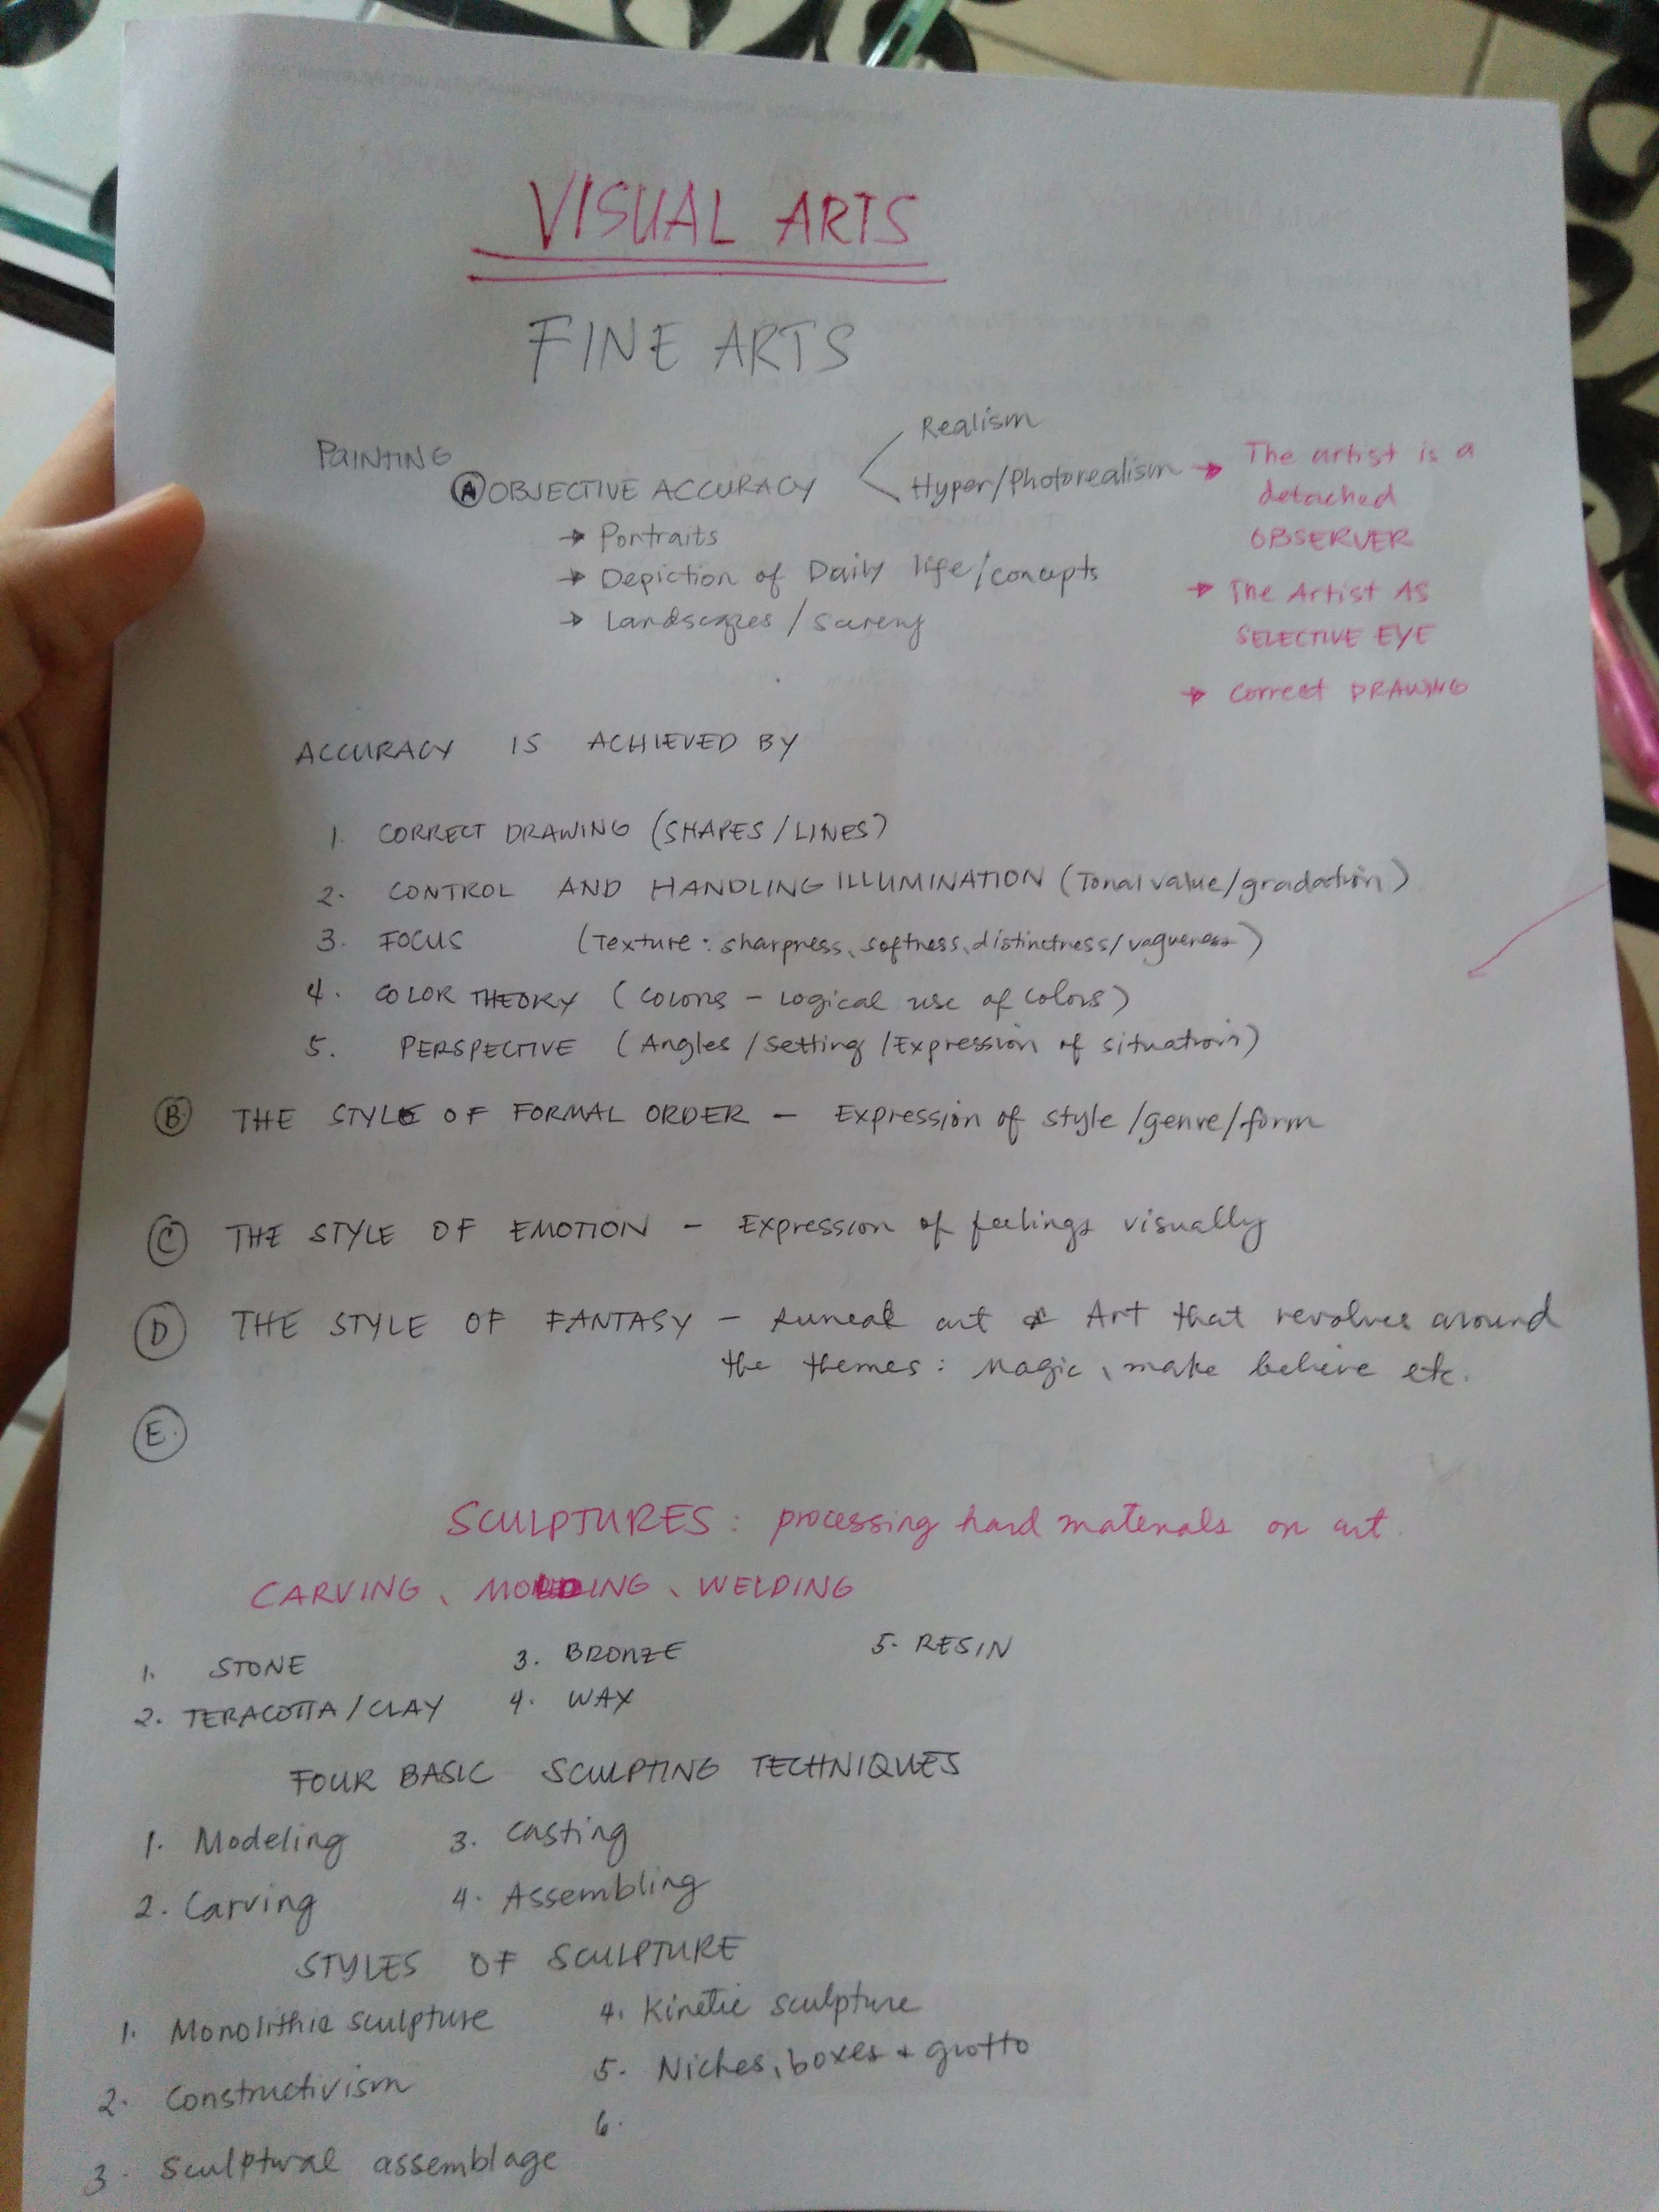 VISUAL ARTS
FINE ARTS
PAINTING
A OBJECTIVE ACCURACY
Realism
Hyper/Photorealism
→ Portraits
→ Depiction of Daily life/concepts
→ Landscapes /
→ The artist is a
detached
OBSERVER
→ The Artist AS
SELECTIVE EYE
→ Correct DRAWING
ACCURACY IS ACHIEVED BY
1. CORRECT DRAWING (SHAPES/LINES)
2. CONTROL AND HANDLING ILLUMINATION (Tonal value/gradation)
3. FOCUS (Texture: sharpness, softness, distinctness/vagueness)
4. COLOR THEORY (Colors - Logical use of colors)
5. PERSPECTIVE (Angles/Setting/Expression of situation)
B. THE STYLE OF FORMAL ORDER - Expression of style/genre/form
C THE STYLE OF EMOTION - Expression of feelings visually
D THE STYLE OF FANTASY - art Art that revolves around
the themes: Magic, make believe etc.
E.
SCULPTURES: processing hard materials on art.
CARVING, MOLDING, WELDING
1. STONE
2. TERACOTTA/CLAY
3. BRONZE
4. WAX
5. RESIN
FOUR BASIC SCULPTING TECHNIQUES
1. Modeling
2. Carving
3. Casting
4. Assembling
STYLES OF SCULPTURE
1. Monolithic sculpture
2. Constructivism
3. Sculptural assemblage
4. Kinetic sculpture
5. Niches, boxes + grotto
6.